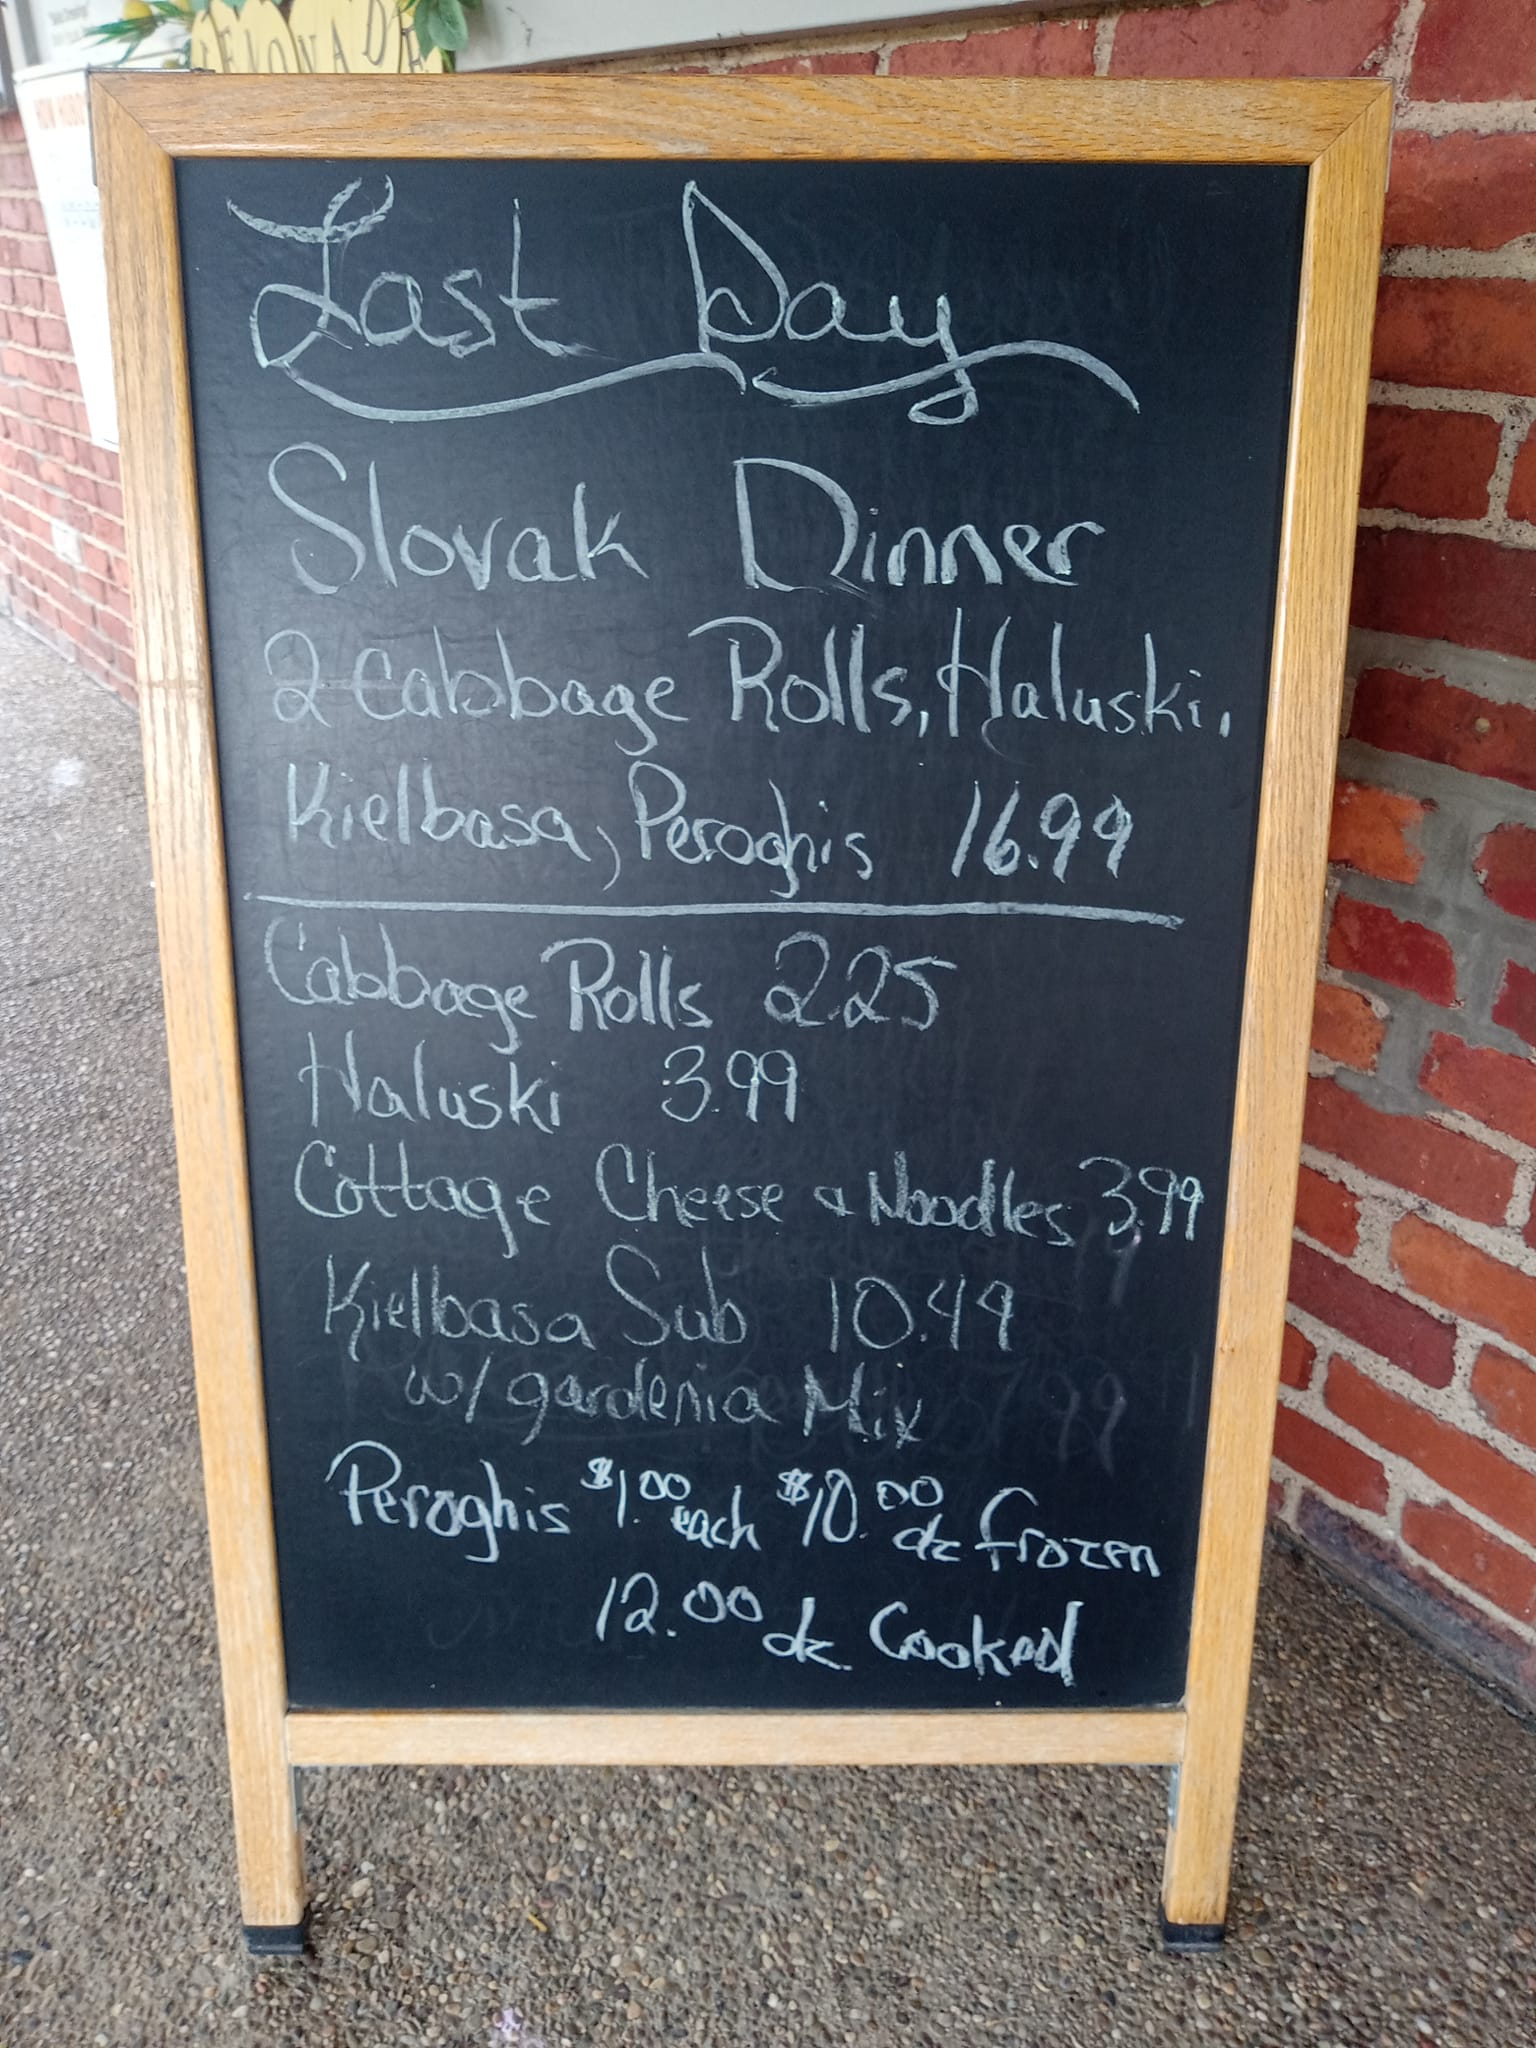 LEMONADE
Last Day
Slovak Dinner
2 Cabbage Rolls, Haluski,
Kielbasa, Peroghis 16.99
Cabbage Rolls 2.25
Haluski 3.99
Cottage Cheese & Noodles 3.99
Kielbasa Sub 10.49
w/ gardenia Mix
Peroghis $1.00 each $10.00 dz frozen
12.00 dz. Cooked